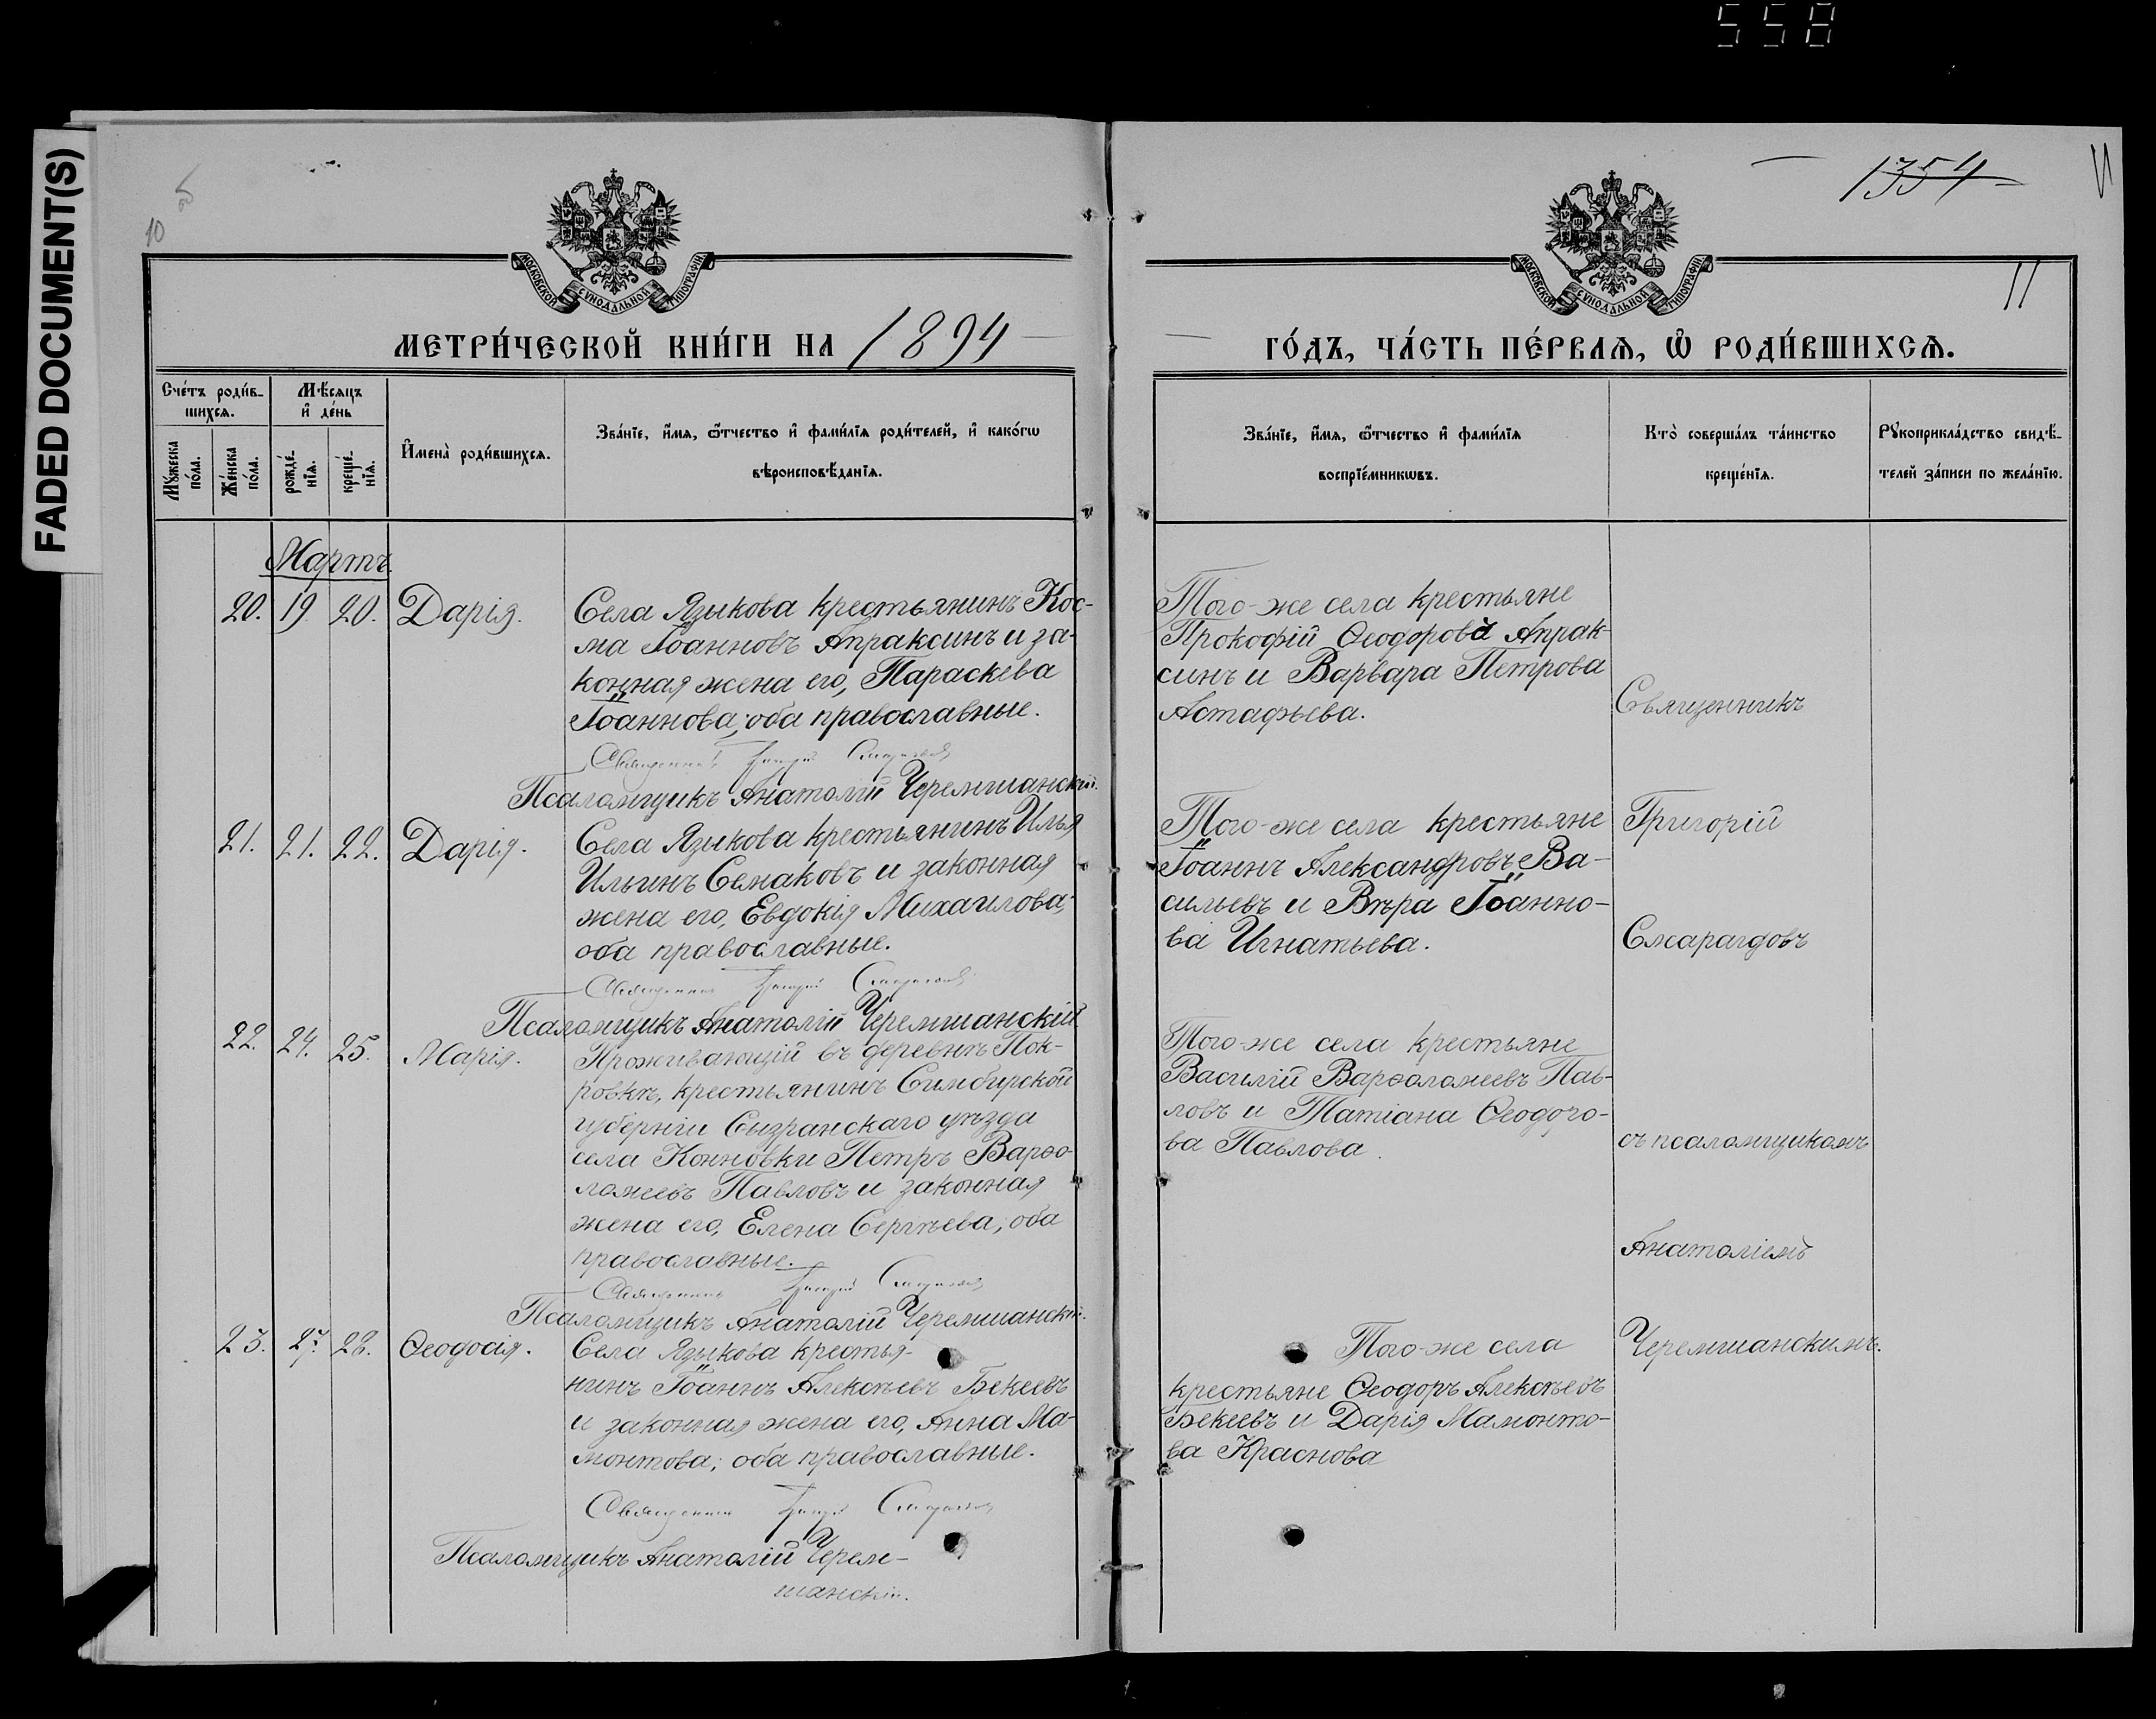 558
FADED DOCUMENT(S)
10
1354
11
МОСКОВСКОЙ СѴНОДАЛЬНОЙ ТИПОГРАФІИ
МОСКОВСКОЙ СѴНОДАЛЬНОЙ ТИПОГРАФІИ
МЕТРИ́ЧЕСКОЙ КНИ́ГИ НА 1894
ГО́ДЪ, ЧА́СТЬ ПЕ́РВАѦ, Ѡ҆ РОДИ́ВШИХСѦ.
Сче́тъ роди́в-
шихсѧ.
Мѣ́сѧцъ
и҆ де́нь
Мꙋ́жеска
по́ла.
Же́нска
по́ла.
рожде́-
нїѧ.
креще́-
нїѧ.
И҆мена̀ роди́вшихсѧ.
Зва́нїе, и҆́мѧ, ѻ҆́тчество и҆ фами́лїѧ роди́телей, и҆ како́гѡ
вѣроисповѣ́данїѧ.
Зва́нїе, и҆́мѧ, ѻ҆́тчество и҆ фами́лїѧ
воспрїе́мникѡвъ.
Кто̀ соверша́лъ та́инство
креще́нїѧ.
Рꙋкоприкла́дство свидѣ́-
телей за́писи по жела́нїю.
Мартъ.
20. 19. 20. Дарія.
Села Языкова крестьянинъ Кос-
ма Іоанновъ Апраксинъ и за-
конная жена его, Параскева
Іоаннова; оба православные.
Священникъ Григорій Смарагдовъ
Псаломщикъ Анатолій Черемшанскій.
Того-же села крестьяне
Прокофій Ѳеодоровъ Апрак-
синъ и Варвара Петрова
Астафьева.
21. 21. 22. Дарія.
Села Языкова крестьянинъ Илья
Ильинъ Семаковъ и законная
жена его, Евдокія Михаилова;
оба православные.
Священникъ Григорій Смарагдовъ
Псаломщикъ Анатолій Черемшанскій.
Того-же села крестьяне
Іоаннъ Александровъ Ва-
сильевъ и Вѣра Іоанно-
ва Игнатьева.
22. 24. 25. Марія.
Проживающій въ деревнѣ Пок-
ровкѣ, крестьянинъ Симбирской
губерніи Сызранскаго уѣзда
села Конновки Петръ Варѳо-
ломеевъ Павловъ и законная
жена его, Елена Сергѣева; оба
православные.
Священникъ Григорій Смарагдовъ
Псаломщикъ Анатолій Черемшанскій.
Того-же села крестьяне
Василій Варѳоломеевъ Пав-
ловъ и Татіана Ѳеодоро-
ва Павлова.
23. 27. 28. Ѳеодосія.
Села Языкова крестья-
нинъ Іоаннъ Алексѣевъ Бекеевъ
и законная жена его, Анна Ма-
монтова; оба православные.
Священникъ Григорій Смарагдовъ
Псаломщикъ Анатолій Черем-
шанскій.
Того-же села
крестьяне Ѳеодоръ Алексѣевъ
Бекеевъ и Дарія Мамонто-
ва Краснова
Священникъ
Григорій
Смарагдовъ
съ псаломщикомъ
Анатоліемъ
Черемшанскимъ.